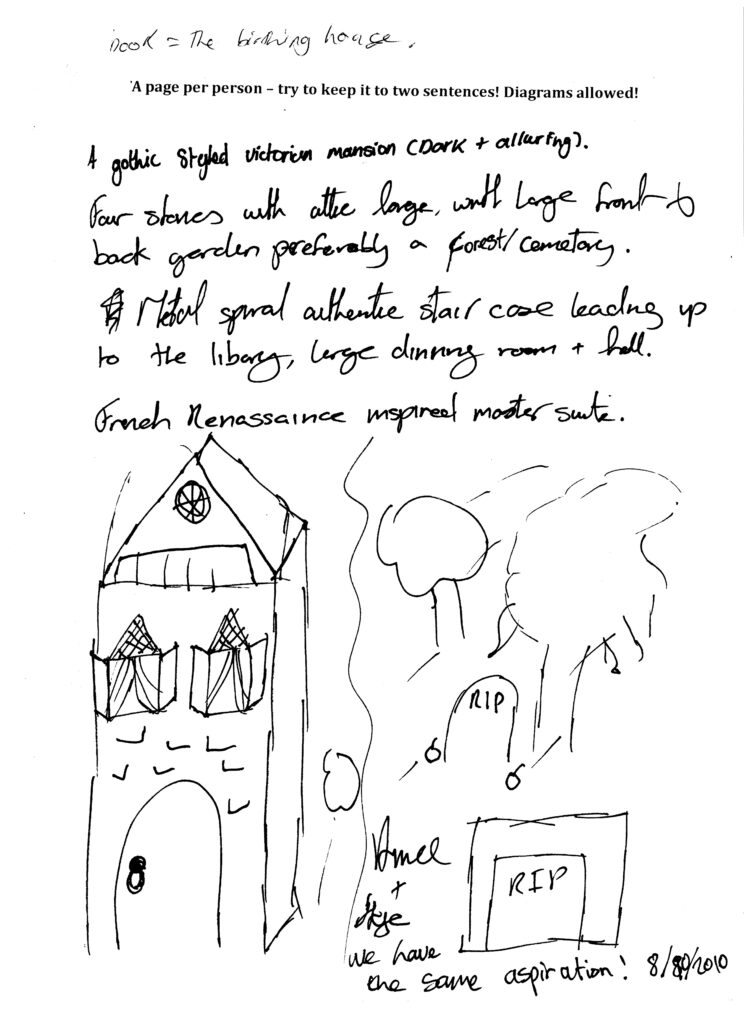 Book = The birthing house.
'A page per person – try to keep it to two sentences! Diagrams allowed!
A gothic styled victorian mansion (Dark + alluring).
Four stories with attic large, with large front to
back garden preferably a forest/cemetary.
Metal spiral authentic stair case leading up
to the libary, large dinning room + hall.
French Renassaince inspired master suite.
RIP
RIP
+
we have
the same aspiration! 8/8/2010